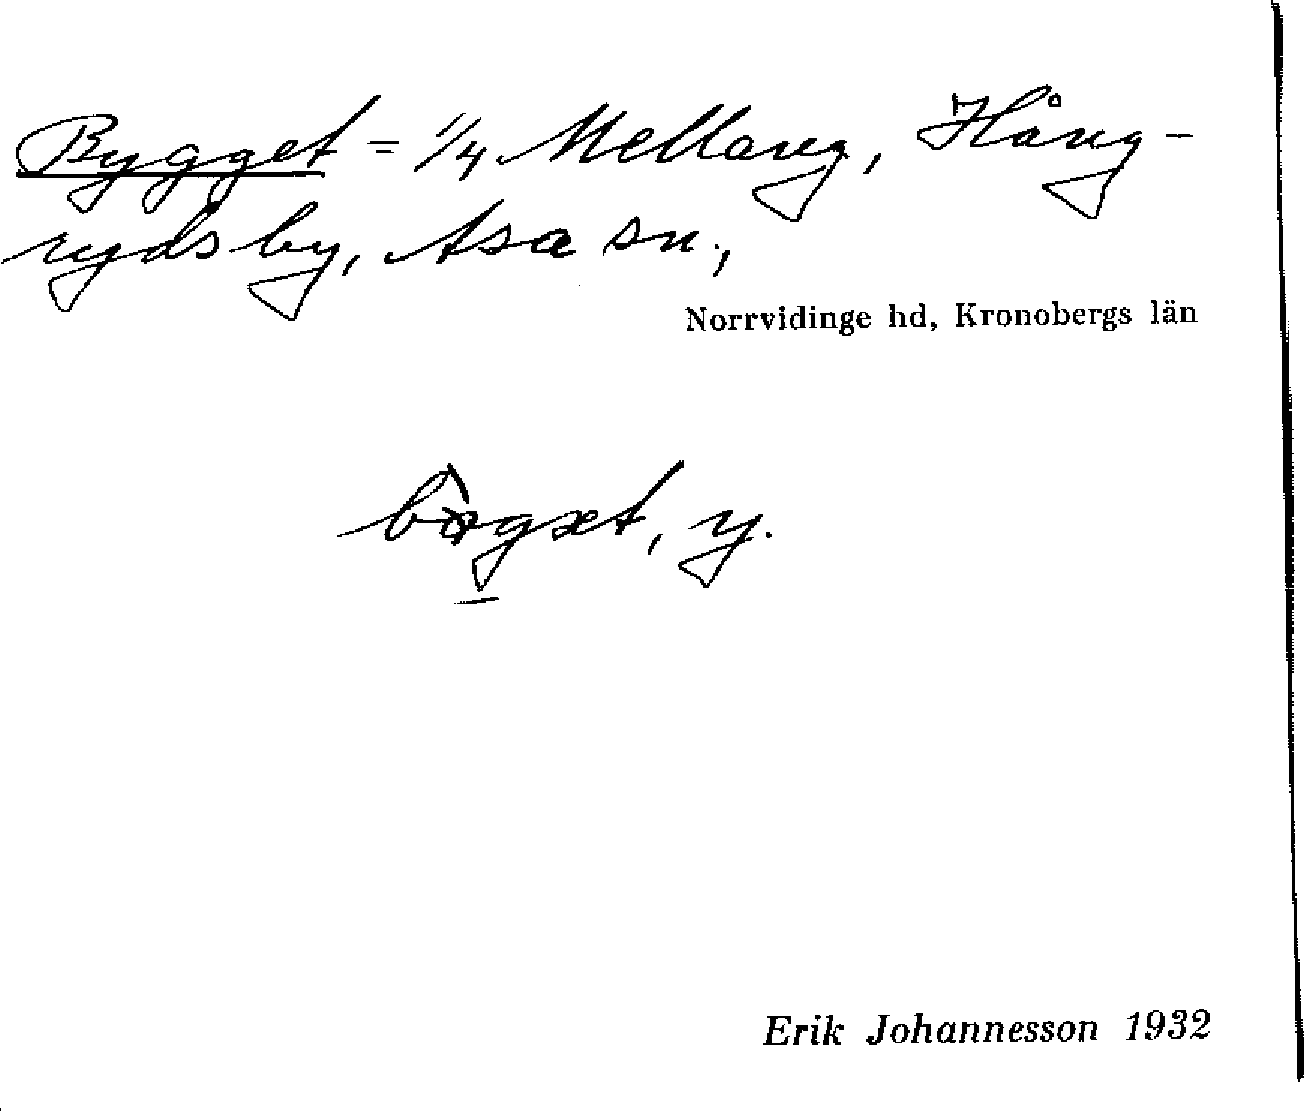 Bygget = 1/4 Mellang, Hång-
rydsby, Asa sn.,
Norrvidinge hd, Kronobergs län
y.
Erik Johannesson 1932